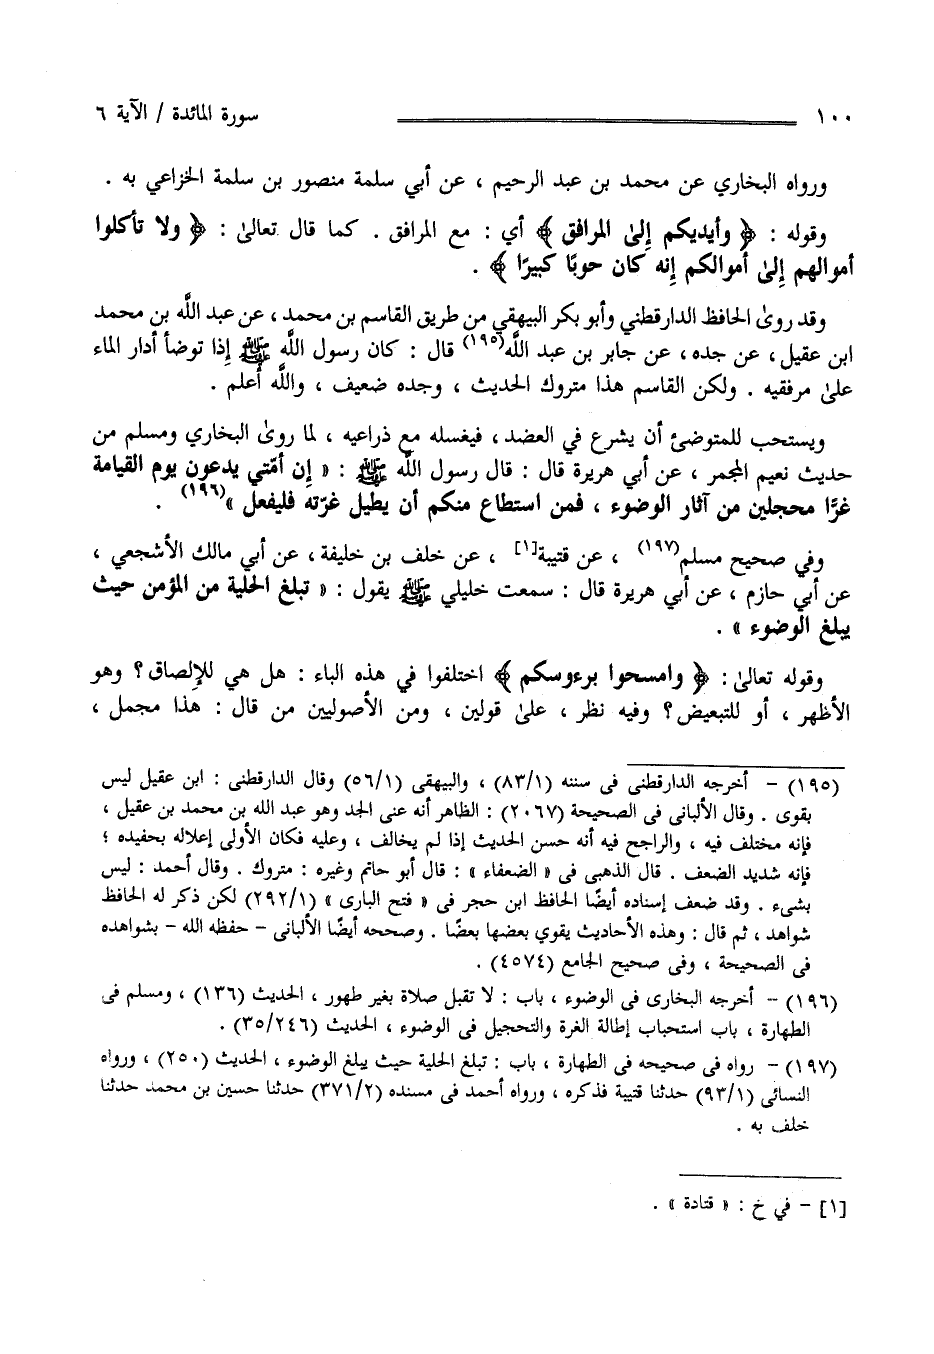 ١٠٠ سورة المائدة / الآية ٦
ورواه البخاري عن محمد بن عبد الرحيم ، عن أبي سلمة منصور بن سلمة الخزاعي به .
وقوله : ﴿ وأيديكم إلىٰ المرافق ﴾ أي : مع المرافق . كما قال تعالىٰ : ﴿ ولا تأكلوا
أموالهم إلىٰ أموالكم إنه كان حوبًا كبيرًا ﴾ .
وقد روىٰ الحافظ الدارقطني وأبو بكر البيهقي من طريق القاسم بن محمد ، عن عبد اللَّه بن محمد
ابن عقيل ، عن جده ، عن جابر بن عبد اللَّه(١٩٥) قال : كان رسول اللَّه ﷺ إذا توضأ أدار الماء
علىٰ مرفقيه . ولكن القاسم هذا متروك الحديث ، وجده ضعيف ، واللَّه أعلم .
ويستحب للمتوضئ أن يشرع في العضد ، فيغسله مع ذراعيه ، لما روىٰ البخاري ومسلم من
حديث نعيم المجمر ، عن أبي هريرة قال : قال رسول اللَّه ﷺ : « إن أمّتي يدعون يوم القيامة
غرًّا محجلين من آثار الوضوء ، فمن استطاع منكم أن يطيل غرّته فليفعل »(١٩٦) .
وفي صحيح مسلم(١٩٧) ، عن قتيبة[١] ، عن خلف بن خليفة ، عن أبي مالك الأشجعي ،
عن أبي حازم ، عن أبي هريرة قال : سمعت خليلي ﷺ يقول : « تبلغ الحلية من المؤمن حيث
يبلغ الوضوء » .
وقوله تعالىٰ : ﴿ وامسحوا برءوسكم ﴾ اختلفوا في هذه الباء : هل هي للإلصاق ؟ وهو
الأظهر ، أو للتبعيض ؟ وفيه نظر ، علىٰ قولين ، ومن الأصوليين من قال : هذا مجمل ،
(١٩٥) - أخرجه الدارقطنى فى سننه (٨٣/١) ، والبيهقى (٥٦/١) وقال الدارقطنى : ابن عقيل ليس
بقوى . وقال الألبانى فى الصحيحة (٢٠٦٧) : الظاهر أنه عنى الجد وهو عبد الله بن محمد بن عقيل ،
فإنه مختلف فيه ، والراجح فيه أنه حسن الحديث إذا لم يخالف ، وعليه فكان الأولى إعلاله بحفيده ؛
فإنه شديد الضعف . قال الذهبى فى « الضعفاء » : قال أبو حاتم وغيره : متروك . وقال أحمد : ليس
بشىء . وقد ضعف إسناده أيضًا الحافظ ابن حجر فى « فتح البارى » (٢٩٢/١) لكن ذكر له الحافظ
شواهد ، ثم قال : وهذه الأحاديث يقوي بعضها بعضًا . وصححه أيضًا الألبانى - حفظه الله - بشواهده
فى الصحيحة ، وفى صحيح الجامع (٤٥٧٤) .
(١٩٦) - أخرجه البخارى فى الوضوء ، باب : لا تقبل صلاة بغير طهور ، الحديث (١٣٦) ، ومسلم فى
الطهارة ، باب استحباب إطالة الغرة والتحجيل فى الوضوء ، الحديث (٣٥/٢٤٦) .
(١٩٧) - رواه فى صحيحه فى الطهارة ، باب : تبلغ الحلية حيث يبلغ الوضوء ، الحديث (٢٥٠) ، ورواه
النسائى (٩٣/١) حدثنا قتيبة فذكره ، ورواه أحمد فى مسنده (٣٧١/٢) حدثنا حسين بن محمد حدثنا
خلف به .
[١] - في خ : « قتادة » .